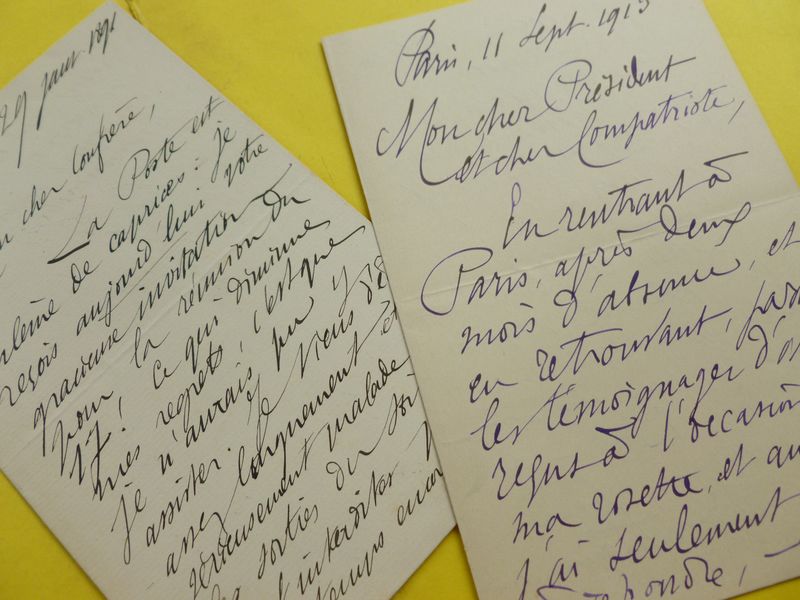 29 janv. 1891
cher Confrère,
La Poste est
de caprices. Je
reçois aujourd'hui votre
gracieuse invitation
pour la réunion du
17! ce qui diminue
mes regrets, c'est que
je n'aurais pu y
assister. Je viens d'
assez longuement et
sérieusement malade
sorties du soi
interdites
temps encor
Paris, 11 Sept. 1913
Mon cher Président
et cher Compatriote,
En rentrant à
Paris, après deux
mois d'absence, et
en retrouvant, par
les témoignages d'
reçus à l'occasion
ma rosette, et au
j'ai seulement
répondre,